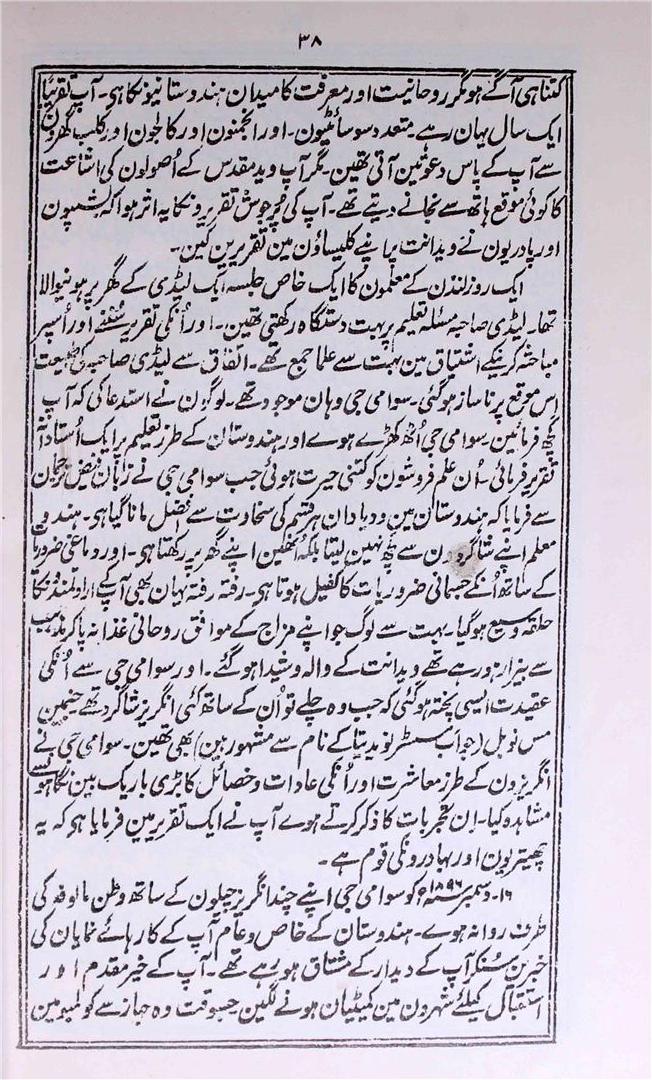 ۳۸
کتنا ہی آگے ہو مگر روحانیت اور معرفت کا میدان ہندوستانیونکا ہی۔ آپ تقریباً
ایک سال یہان رہے۔ متعدد سوسائٹیون۔ اور انجمنون اور کالجون اور کلب گھرون
سے آپ کے پاس دعوتین آتی تھین۔ مگر آپ وید مقدس کے اُصولون کی اشاعت
کا کوئی موقع ہاتھ سے نجانے دیتے تھے۔ آپ کی پُرجوش تقریرونکا یہ اثر ہوا کہ بشپون
اور پادریون نے ویدانت پر اپنے کلیساؤن مین تقریرین کین۔
ایک روز لندن کے معلمون کا ایک خاص جلسہ ایک لیڈی کے گھر پر ہونیوالا
تھا۔ لیڈی صاحبہ مسئلہ تعلیم پر بہت دستگاہ رکھتی تھین۔ اور اُنکی تقریر سُننے اور اُسپر
مباحثہ کرنیکے اشتیاق مین بہت سے علما جمع تھے۔ اتفاق سے لیڈی صاحبہ کی طبیعت
اس موقع پر ناساز ہوگئی۔ سوامی جی وہان موجود تھے۔ لوگون نے استدعا کی کہ آپ
کچھ فرمائین۔ سوامی جی اُٹھ کھڑے ہوے اور ہندوستان کے طرز تعلیم پر ایک اُستادانہ
تقریر فرمائی۔ اُن علم فروشون کو کتنی حیرت ہوئی جب سوامی جی نے زبان فیض ترجمان
سے فرمایا کہ ہندوستان مین ودیا دان ہر قسم کی سخاوت سے افضل مانا گیا ہی۔ ہندوی
معلم اپنے شاگردون سے کچھ نہین لیتا بلکہ اُنھین اپنے گھر پر رکھتا ہی۔ اور دماغی ضروریات
کے ساتھ اُنکے جسمانی ضروریات کا کفیل ہوتا ہی۔ رفتہ رفتہ یہان بھی آپکے ارادتمندونکا
حلقہ وسیع ہوگیا۔ بہت سے لوگ جو اپنے مزاج کے موافق روحانی غذا نہ پاکر مذہب
سے بیزار ہو رہے تھے ویدانت کے والہ و شیدا ہوگئے۔ اور سوامی جی سے اُنکی
عقیدت ایسی پختہ ہوگئی کہ جب وہ چلے تو اُن کے ساتھ کئی انگریز شاگرد تھے جنمین
مس نوبل (جو اب سسٹر نویدیتا کے نام سے مشہور ہین) بھی تھین۔ سوامی جی نے
انگریزون کے طرز معاشرت اور اُنکی عادات و خصائل کا بڑی باریک بین نگاہونسے
مشاہدہ کیا۔ اِن تجربات کا ذکر کرتے ہوے آپ نے ایک تقریر مین فرمایا ہی کہ یہ
چھتریون اور بہادرونکی قوم ہے۔
۱۶۔ دسمبر ۱۸۹۶ء کو سوامی جی اپنے چند انگریز چیلون کے ساتھ وطن مالوفہ کی
طرف روانہ ہوے۔ ہندوستان کے خاص و عام آپ کے کارہائے نمایان کی
خبرین سنکر آپ کے دیدار کے مشتاق ہو رہے تھے۔ آپ کے خیر مقدم اور
استقبال کیلئے شہرون مین کمیٹیان ہونے لگین جسوقت وہ جہاز سے کولمبو مین